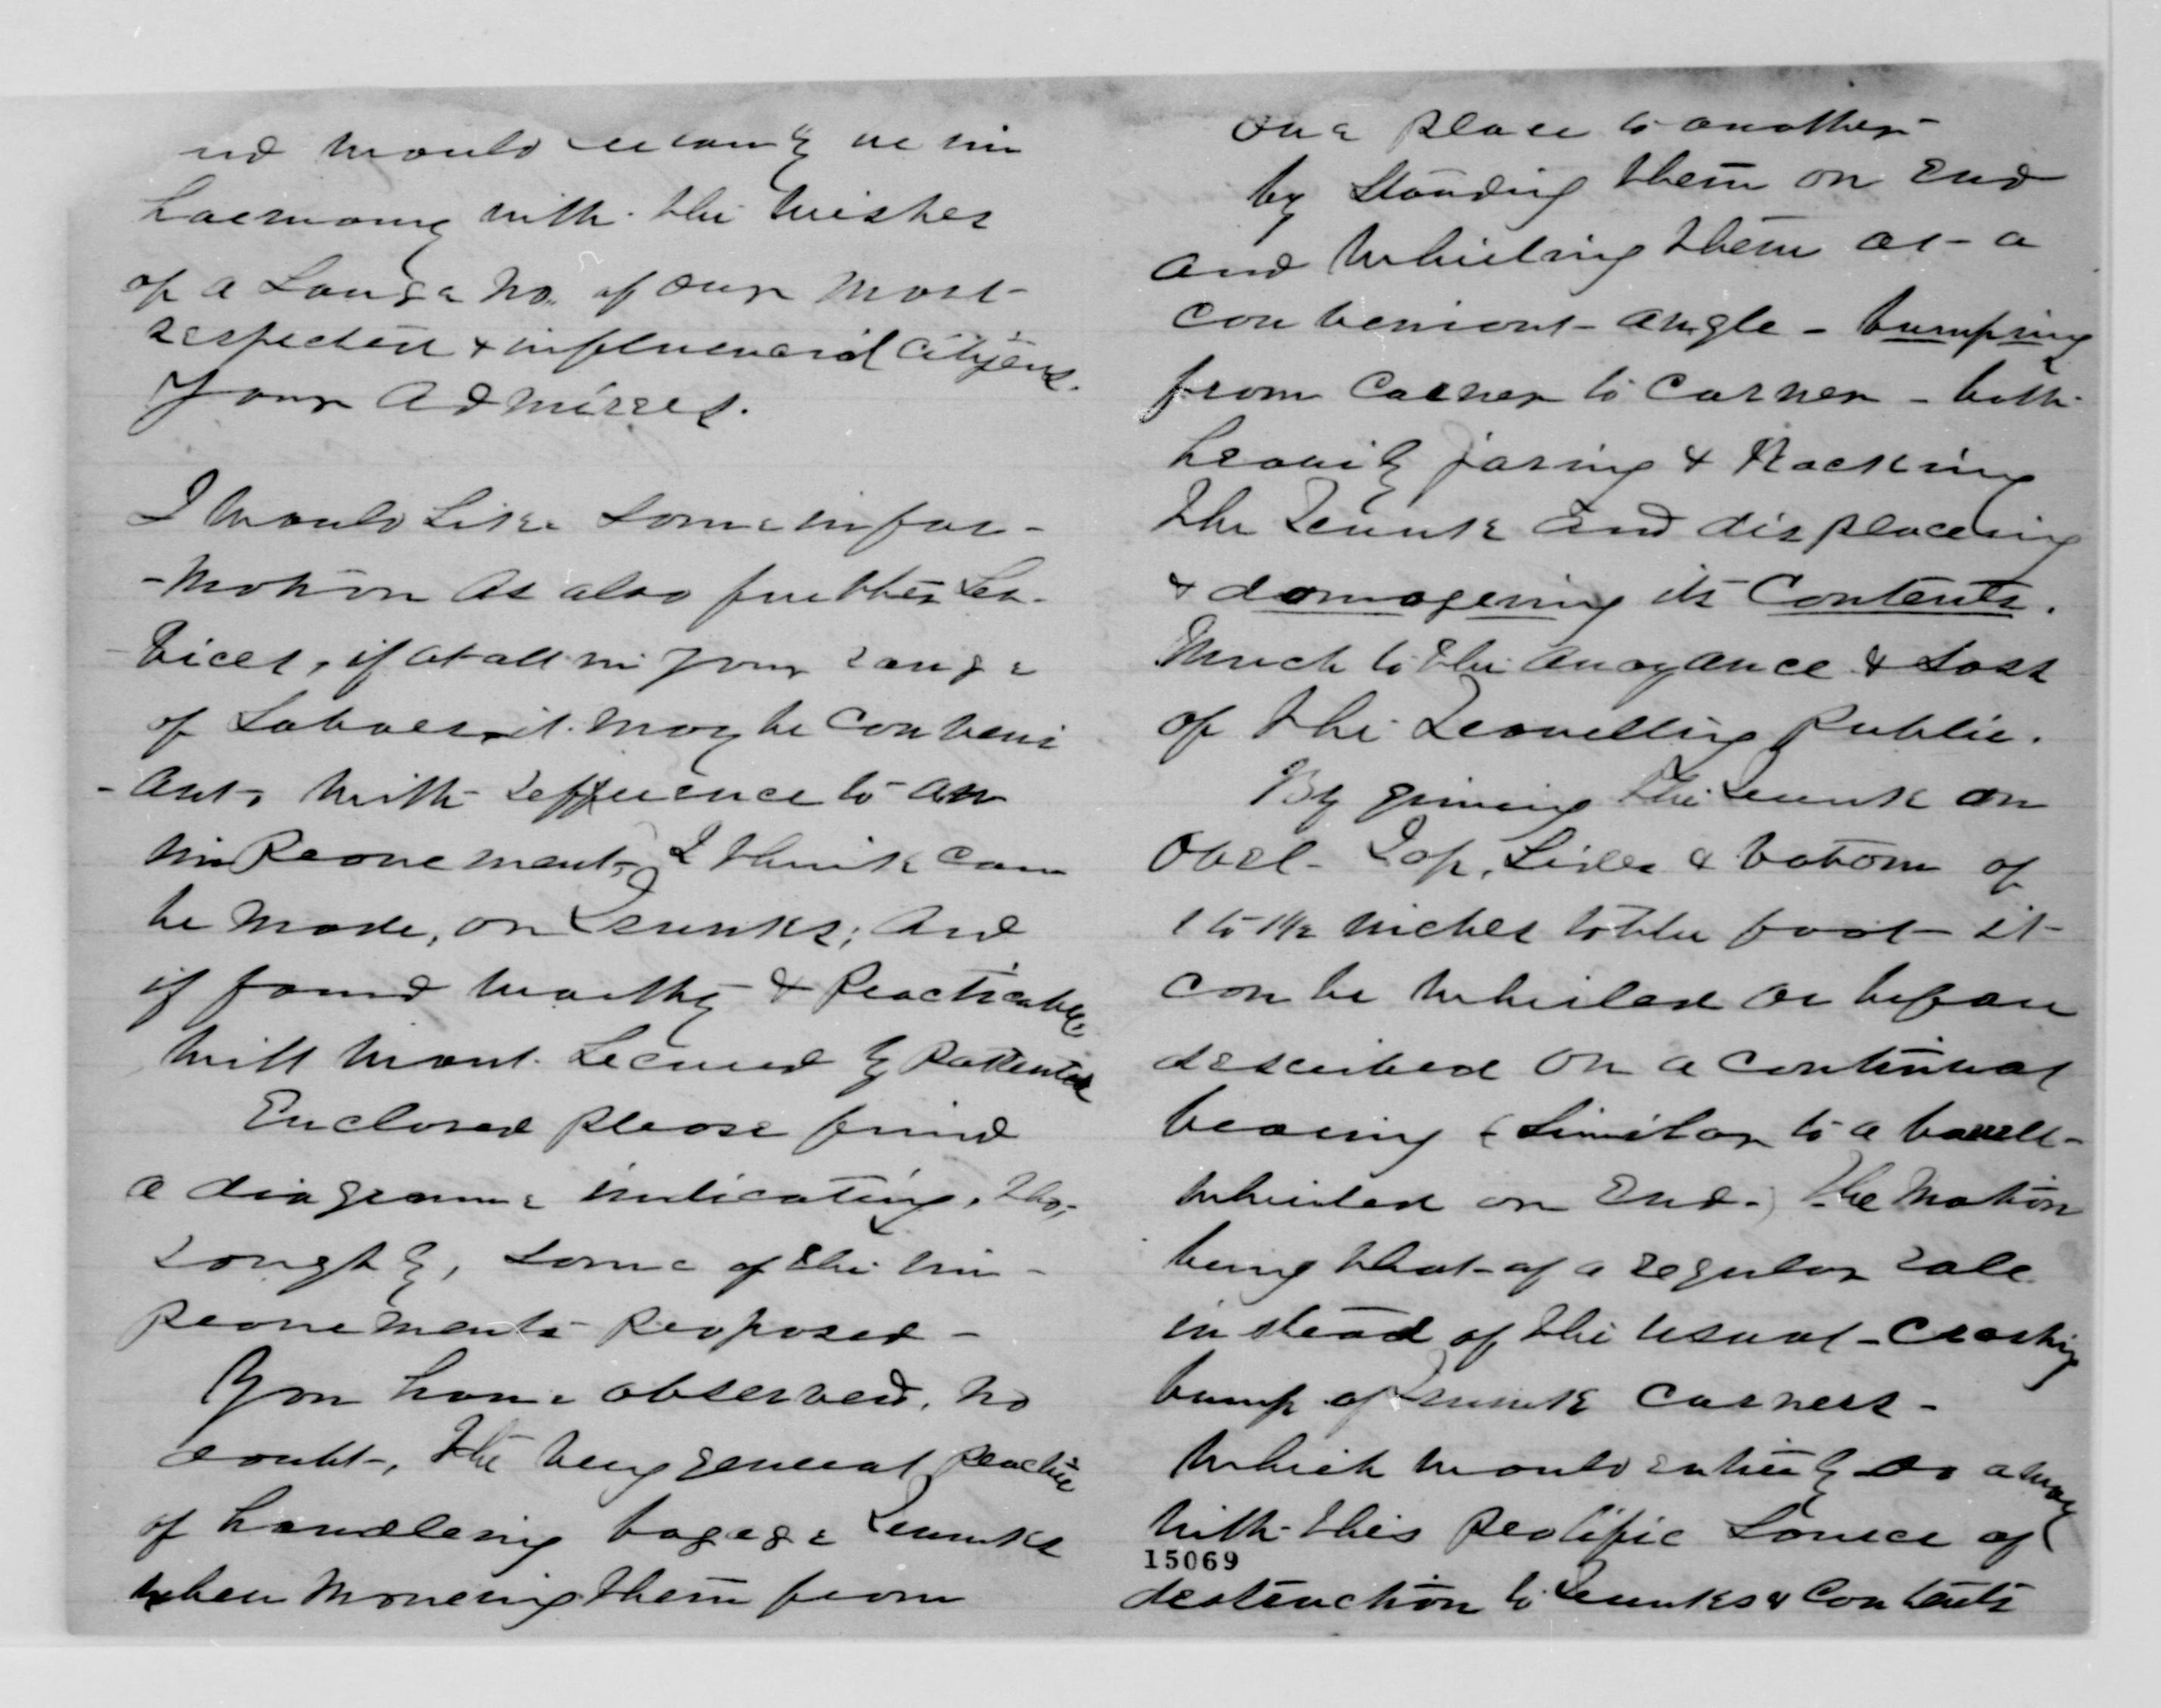 nd would certainly be in
harmony with the wishes
of a Large No. of our most
respected & influencial Citizens.
Your Admirers.
I would Like Some infor-
-mation as also further Ser-
-vices, if at all in your range
of Labors, it may be conveni
-ant, with refference to an
imProvement, I think can
be made, on Trunks; and
if found worthy & Practicable
will want Secured by Pattent
Enclosed please find
a diagrame indicating, tho-
roughly, Some of the im-
provements proposed -
You have observed, no
doubt, the very general practice
of handleing bagage Trunks
when moveing them from
one place to another
by Standing them on End
and whirling them at a
convenient angle - bumping
from Corner to Corner - both
heavily jaring & Racking
the Trunk and displaceing
& damageing its Contents.
Much to the anoyance & Loss
of the Travelling Public.
By giving the Trunk an
Oval Top, Sides & botom of
1 to 1 1/2 inches to the foot it
can be whirled as before
described on a continual
bearing (Similar to a barell
whirled on End.) the Motion
being that of a regular role
instead of the usual Crashing
bump of Trunk Corners -
which would entirely do away
with this prolific Source of
15069
destruction to Trunks & Contents